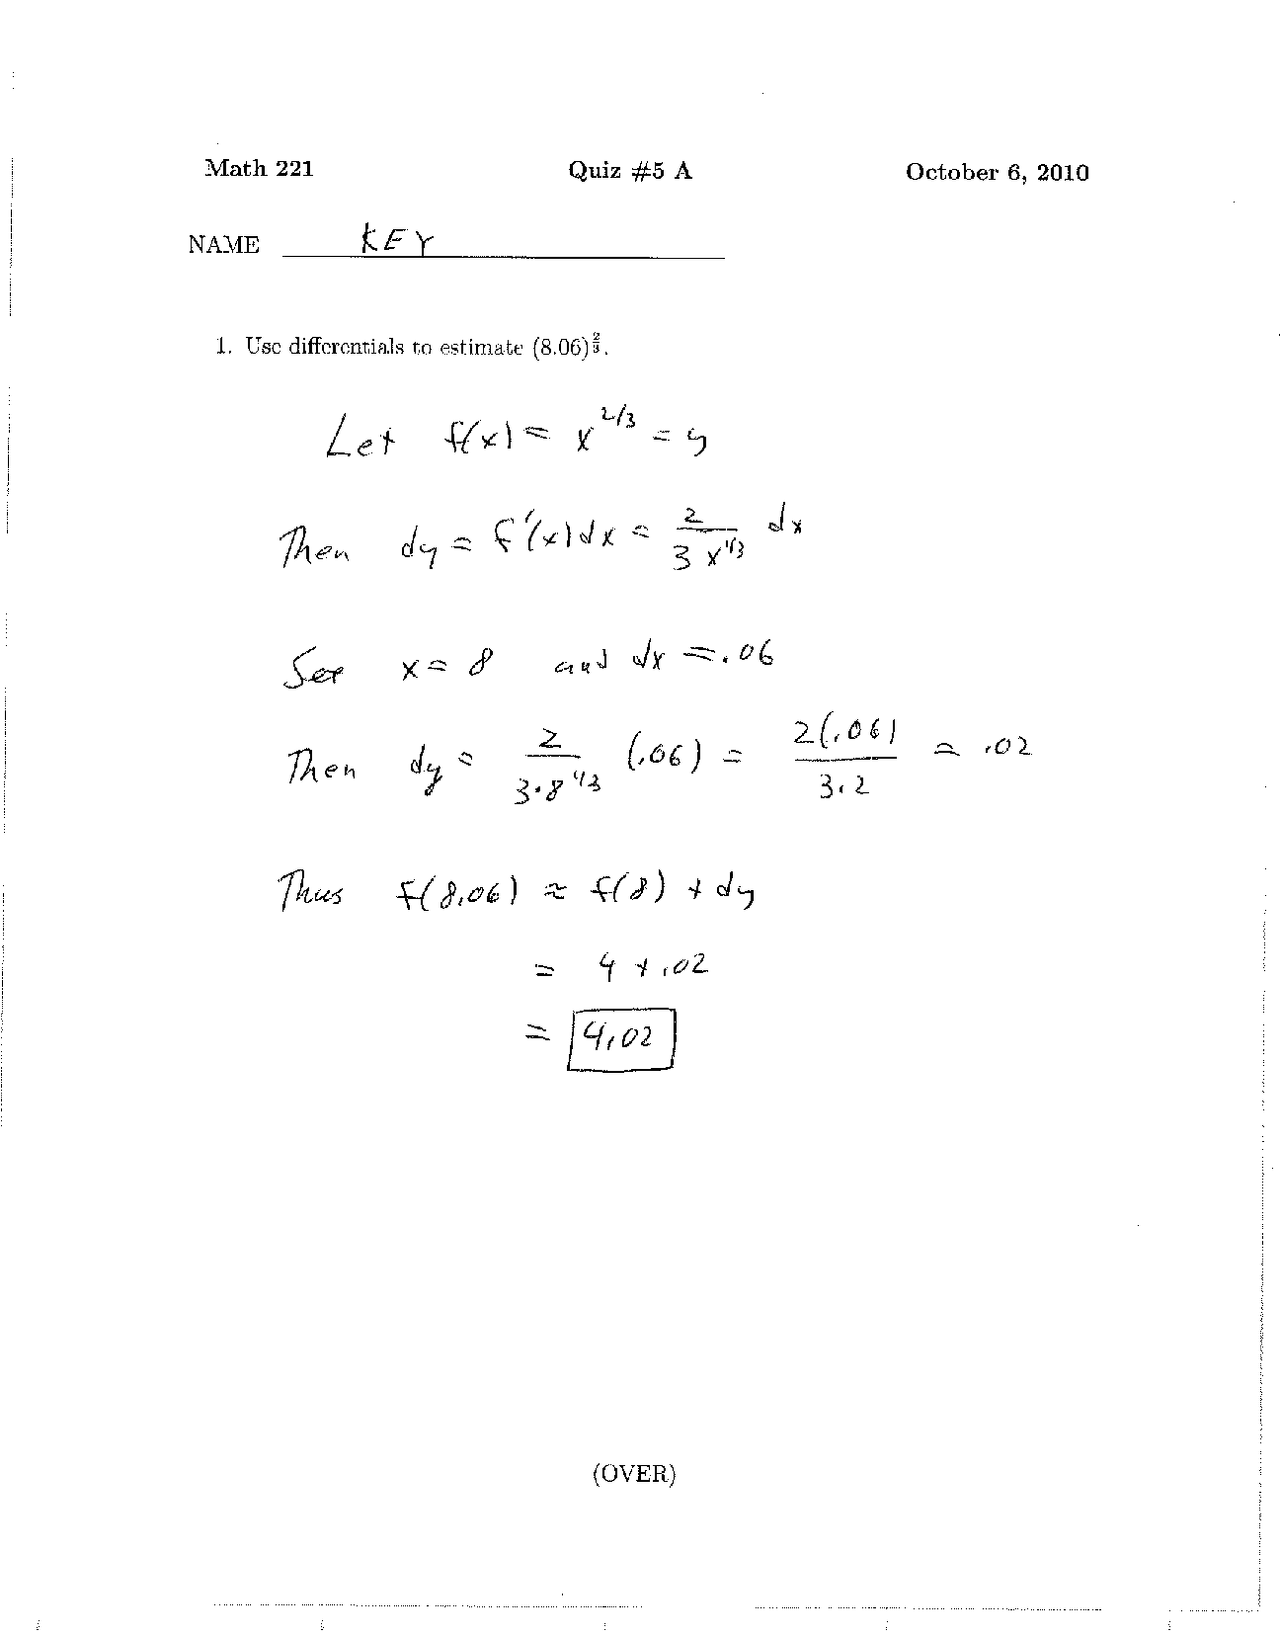 Math 221 Quiz #5 A October 6, 2010
NAME KEY
1. Use differentials to estimate (8.06)^{2/3}.
Let f(x) = x^{2/3} = y
Then dy = f'(x)dx = \frac{2}{3 x^{1/3}} dx
Set x = 8 and dx = .06
Then dy = \frac{2}{3·8^{1/3}} (.06) = \frac{2(.06)}{3·2} = .02
Thus f(8.06) ≈ f(8) + dy
= 4 + .02
= 4.02
(OVER)